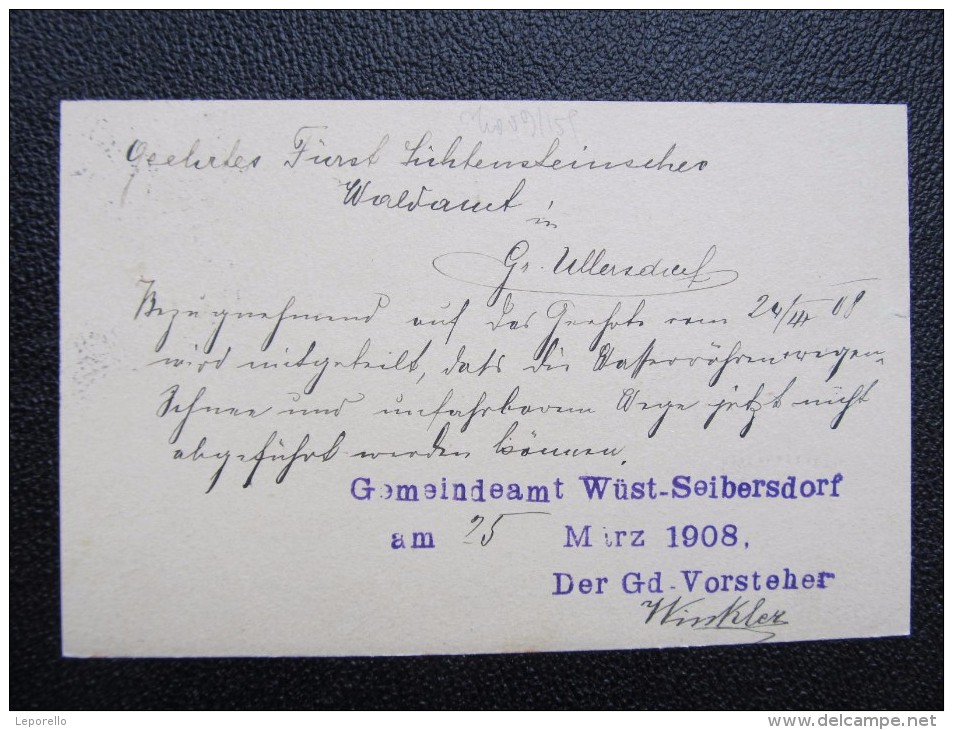 Geehrtes Fürst Lichtensteinsches
Waldamt in
Gr. Ullersdorf
Bezugnehmend auf das Geehrte vom 24/III 08
wird mitgeteilt, daß die Wasserröhren wegen
Schnee und unfahrbarem Wege jetzt nicht
abgeführt werden können.
Gemeindeamt Wüst-Seibersdorf
am 25 März 1908.
Der Gd.-Vorsteher
Winkler
Leporello
www.delcampe.net